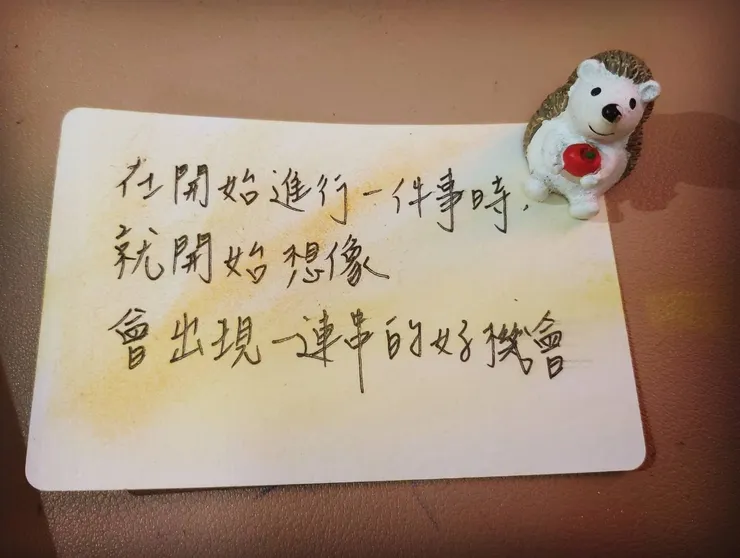 在開始進行一件事時，
就開始想像
會出現一連串的好機會